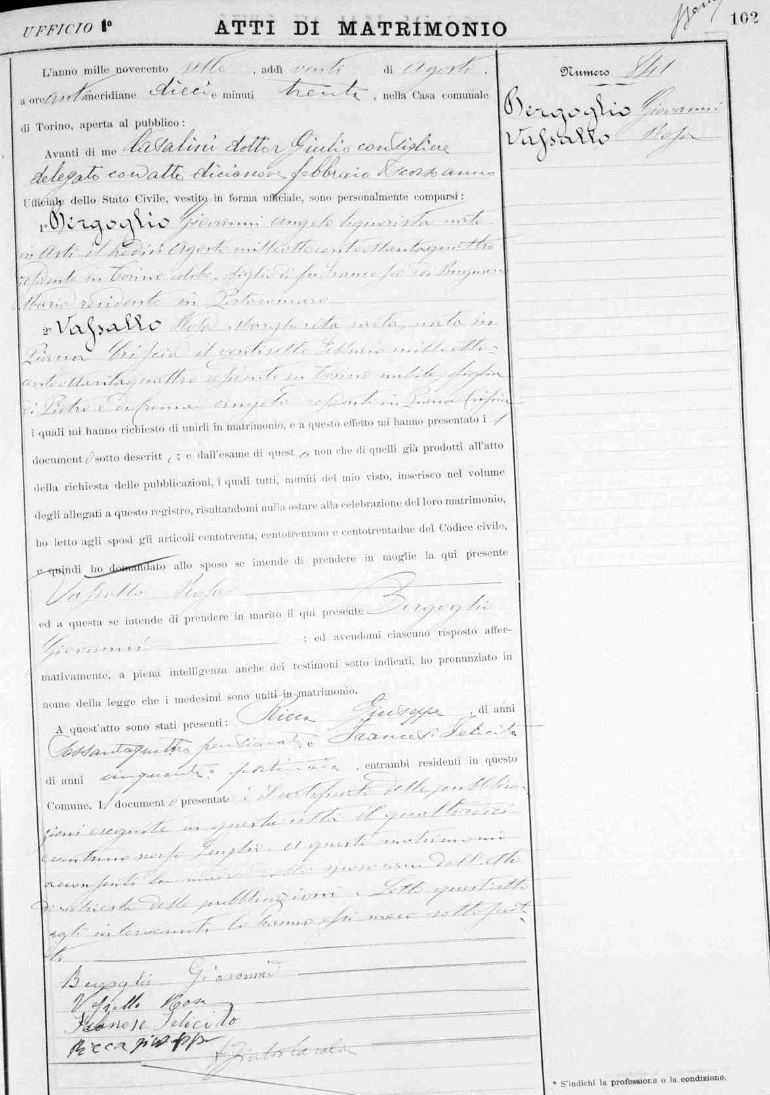 UFFICIO 1º
ATTI DI MATRIMONIO
102
L'anno mille novecento sette, addì venti di Agosto,
a ore antimeridiane dieci e minuti trenta, nella Casa comunale
di Torino, aperta al pubblico:
Avanti di me Casalini dottor Giulio consigliere
delegato con atto diciannove febbraio scorso anno
Ufficiale dello Stato Civile, vestito in forma ufficiale, sono personalmente comparsi:
1º Bergoglio Giovanni Angelo liquorista nato
in Asti il tredici Agosto milleottocentottantaquattro
residente in Torino celibe, figlio di fu Francesco e di
Maria residente in Portacomaro
2º Vassallo Rosa Margherita sarta, nata in
Piana Crixia il ventisette Febbraio milleotto-
centottantaquattro residente in Torino nubile figlia
di Pietro e di Angela residenti in Piana Crixia
i quali mi hanno richiesto di unirli in matrimonio, e a questo effetto mi hanno presentato i l
documento sotto descritto; e dall'esame di questo non che di quelli già prodotti all'atto
della richiesta delle pubblicazioni, i quali tutti, muniti del mio visto, inserisco nel volume
degli allegati a questo registro, risultandomi nulla ostare alla celebrazione del loro matrimonio,
ho letto agli sposi gli articoli centotrenta, centotrentuno e centotrentadue del Codice civile,
e quindi ho domandato allo sposo se intende di prendere in moglie la qui presente
Vassallo Rosa
ed a questa se intende di prendere in marito il qui presente Bergoglio
Giovanni ; ed avendomi ciascuno risposto affer-
mativamente, a piena intelligenza anche dei testimoni sotto indicati, ho pronunziato in
nome della legge che i medesimi sono uniti in matrimonio.
A quest'atto sono stati presenti: Ricca Giuseppe, di anni
sessantaquattro pensionato, e Felicita
di anni cinquanta portinaia, entrambi residenti in questo
Comune. Il documento presentato è il certificato delle pubblica-
zioni eseguite in questa città il quattordici
e ventuno scorso Luglio. A questo matrimonio
acconsentì la madre dello sposo come dall'atto
di richiesta delle pubblicazioni. Letto quest'atto
agli intervenuti lo hanno essi meco sottoscrit-
to
Bergoglio Giovanni
Vassallo Rosa
Felicita
Ricca Giuseppe
Numero 841
Bergoglio Giovanni
Vassallo Rosa
* S'indichi la professione o la condizione.